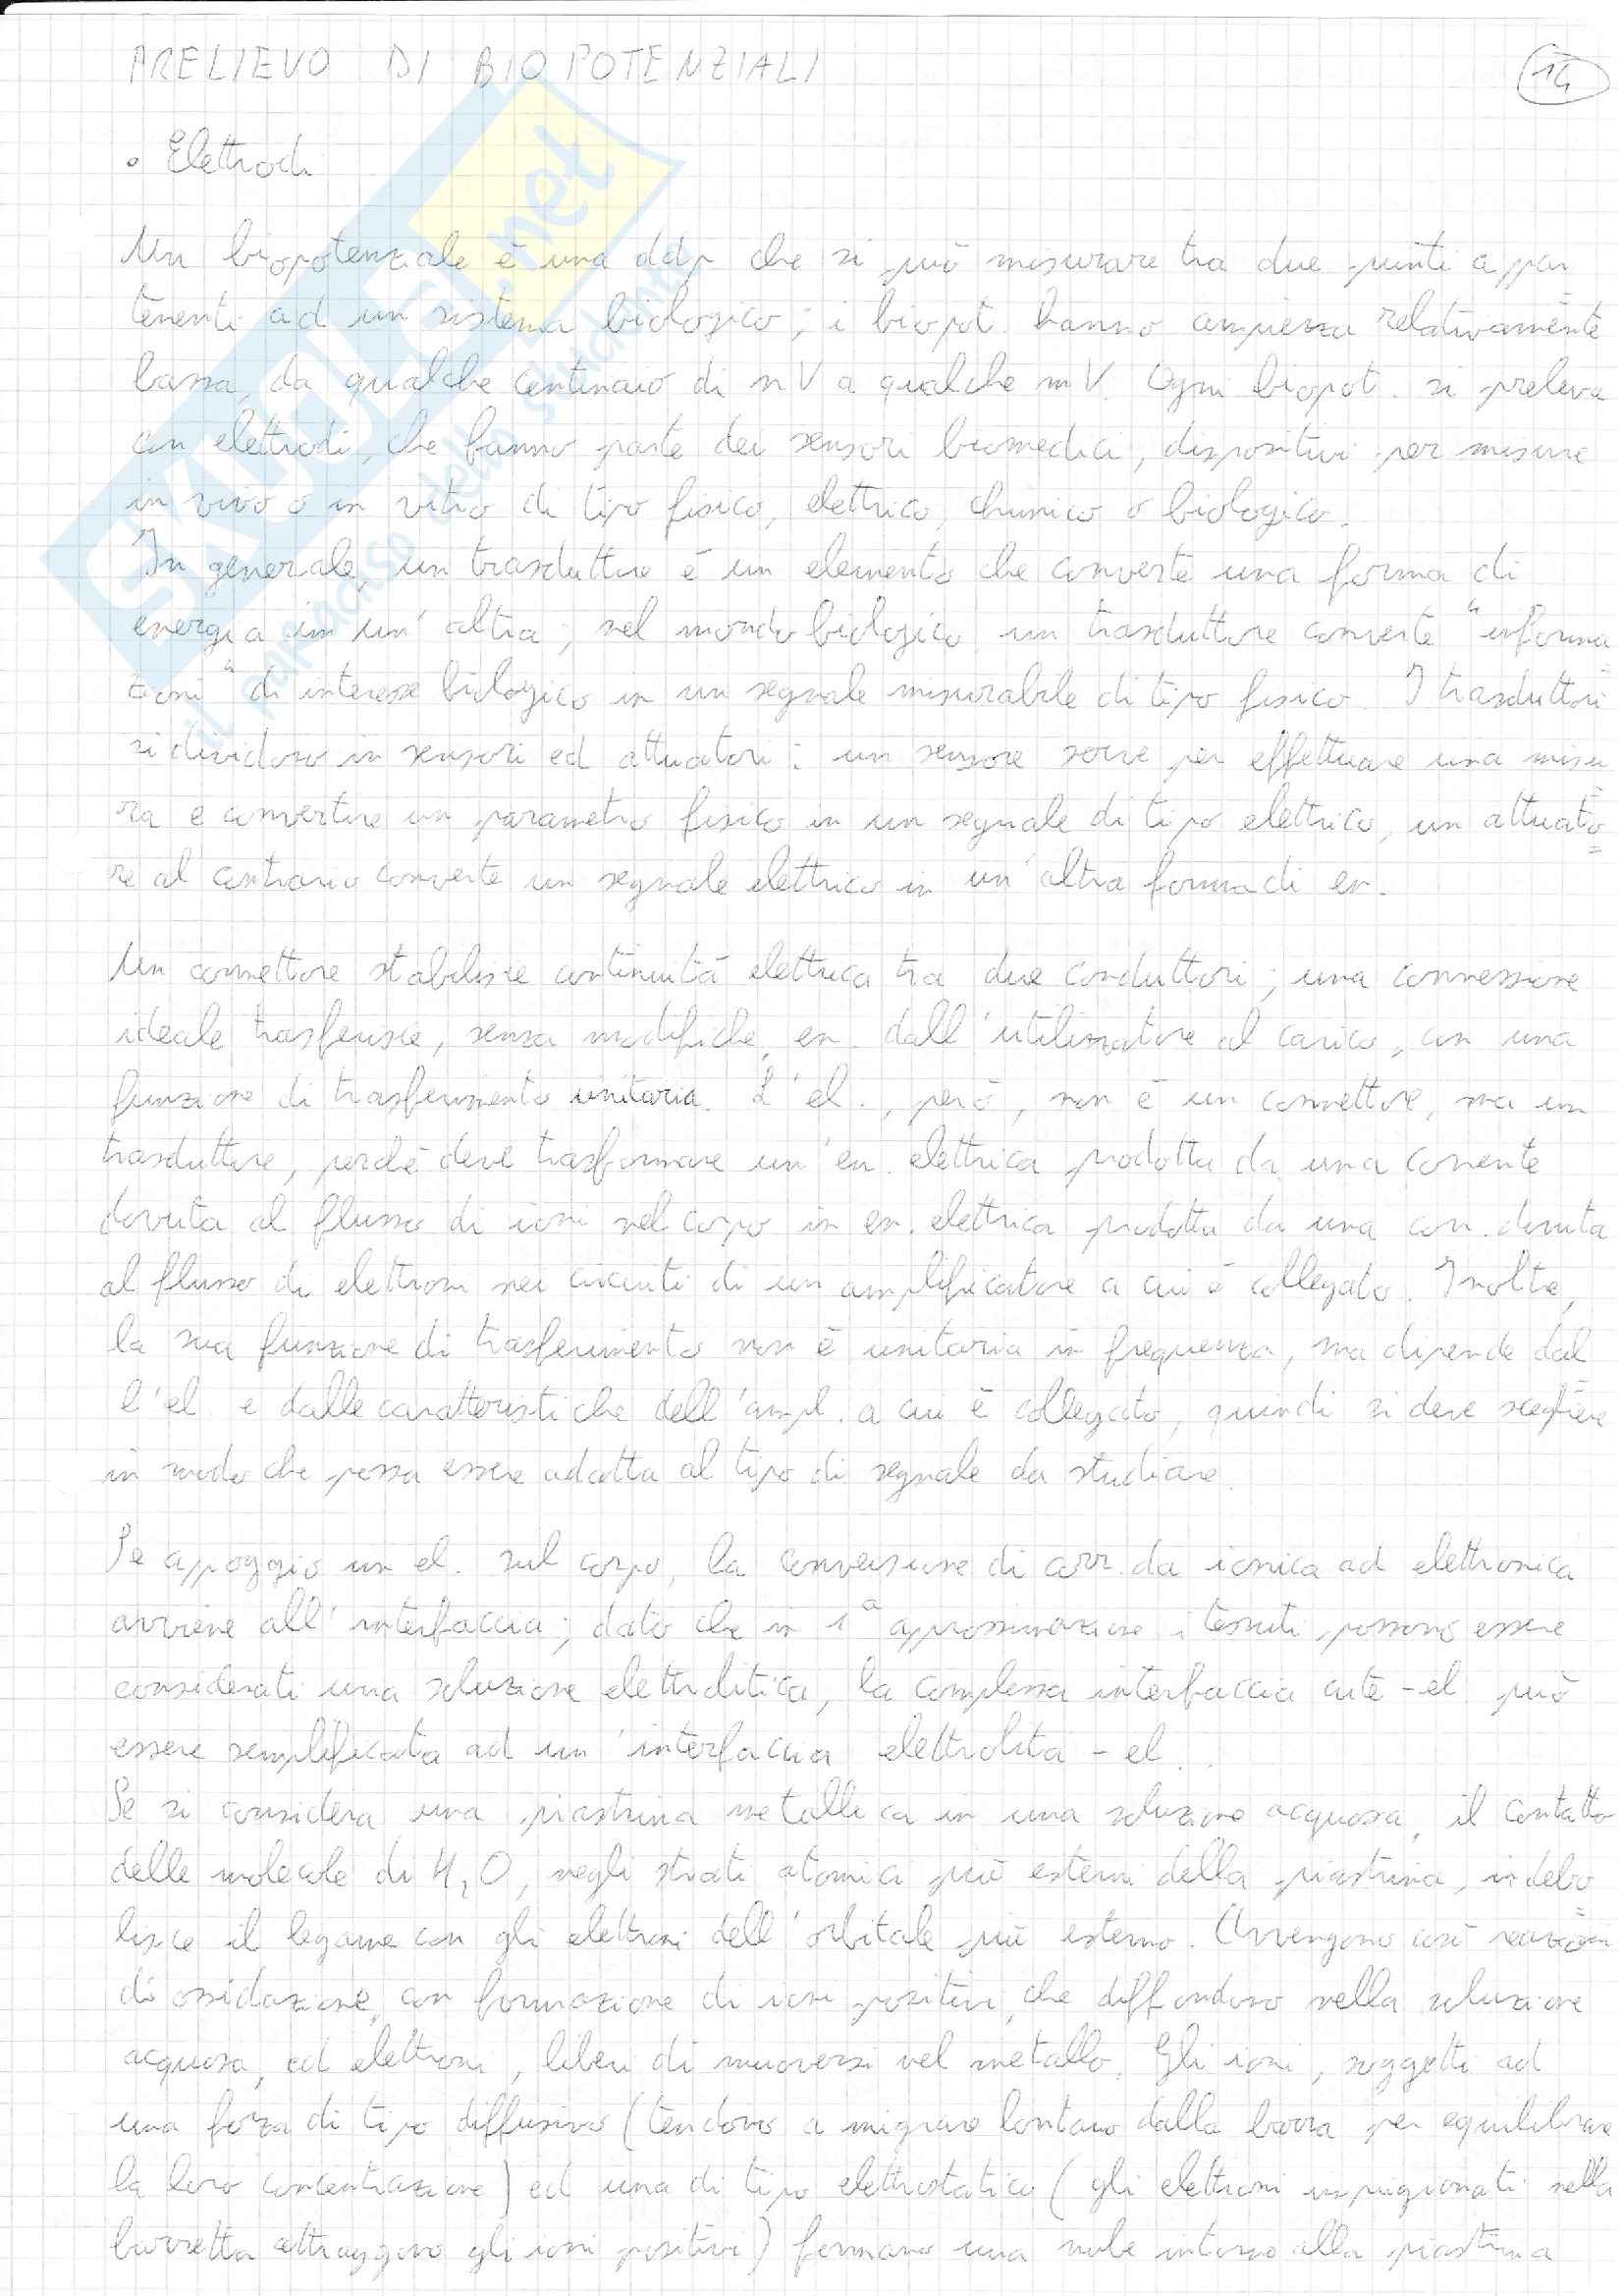 PRELIEVO DI BIOPOTENZIALI
14
• Elettrodi
Un biopotenziale è una ddp che si può misurare tra due punti appar
tenenti ad un sistema biologico; i biopot. hanno ampiezza relativamente
bassa, da qualche centinaio di nV a qualche mV. Ogni biopot. si preleva
con elettrodi, che fanno parte dei sensori biomedici, dispositivi per misure
in vivo o in vitro di tipo fisico, elettrico, chimico o biologico.
In generale, un trasduttore è un elemento che converte una forma di
energia in un'altra; nel mondo biologico un trasduttore converte "informa
zioni" di interesse biologico in un segnale misurabile di tipo fisico. I trasduttori
si dividono in sensori ed attuatori: un sensore serve per effettuare una misu
ra e convertire un parametro fisico in un segnale di tipo elettrico, un attuato
re al contrario converte un segnale elettrico in un'altra forma di en.
Un connettore stabilisce continuità elettrica tra due conduttori; una connessione
ideale trasferisce, senza modifiche, en. dall'utilizzatore al carico, con una
funzione di trasferimento unitaria. L'el., però, non è un connettore, ma un
trasduttore, perché deve trasformare un'en. elettrica prodotta da una corrente
dovuta al flusso di ioni nel corpo in en. elettrica prodotta da una corr. dovuta
al flusso di elettroni nei circuiti di un amplificatore a cui è collegato. Inoltre,
la sua funzione di trasferimento non è unitaria in frequenza, ma dipende dal
l'el. e dalle caratteristiche dell'ampl. a cui è collegato, quindi si deve scegliere
in modo che possa essere adatta al tipo di segnale da studiare.
Se appoggio un el. sul corpo, la conversione di corr. da ionica ad elettronica
avviene all'interfaccia; dato che in 1ª approssimazione i tessuti possono essere
considerati una soluzione elettrolitica, la complessa interfaccia cute-el. può
essere semplificata ad un'interfaccia elettrolita-el.
Se si considera una piastrina metallica in una soluzione acquosa, il contatto
delle molecole di H₂O, negli strati atomici più esterni della piastrina, indebo
lisce il legame con gli elettroni dell'orbitale più esterno. Avvengono così reazioni
di ossidazione, con formazione di ioni positivi, che diffondono nella soluzione
acquosa, ed elettroni, liberi di muoversi nel metallo. Gli ioni, soggetti ad
una forza di tipo diffusivo (tendono a migrare lontano dalla barra per equilibrare
la loro concentrazione) ed una di tipo elettrostatico (gli elettroni imprigionati nella
barretta attraggono gli ioni positivi) formano una nube intorno alla piastrina
SKUOLA.net
il paradiso dello studente